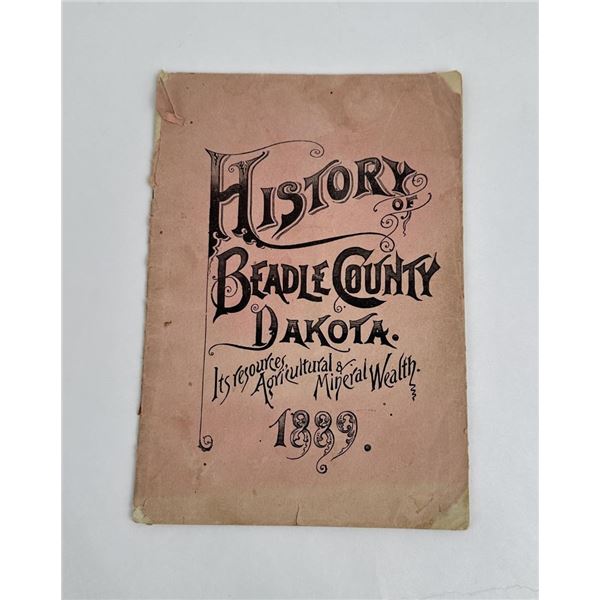 HISTORY
OF
BEADLE COUNTY
DAKOTA.
Its resources,
Agricultural &
Mineral Wealth.
1889.